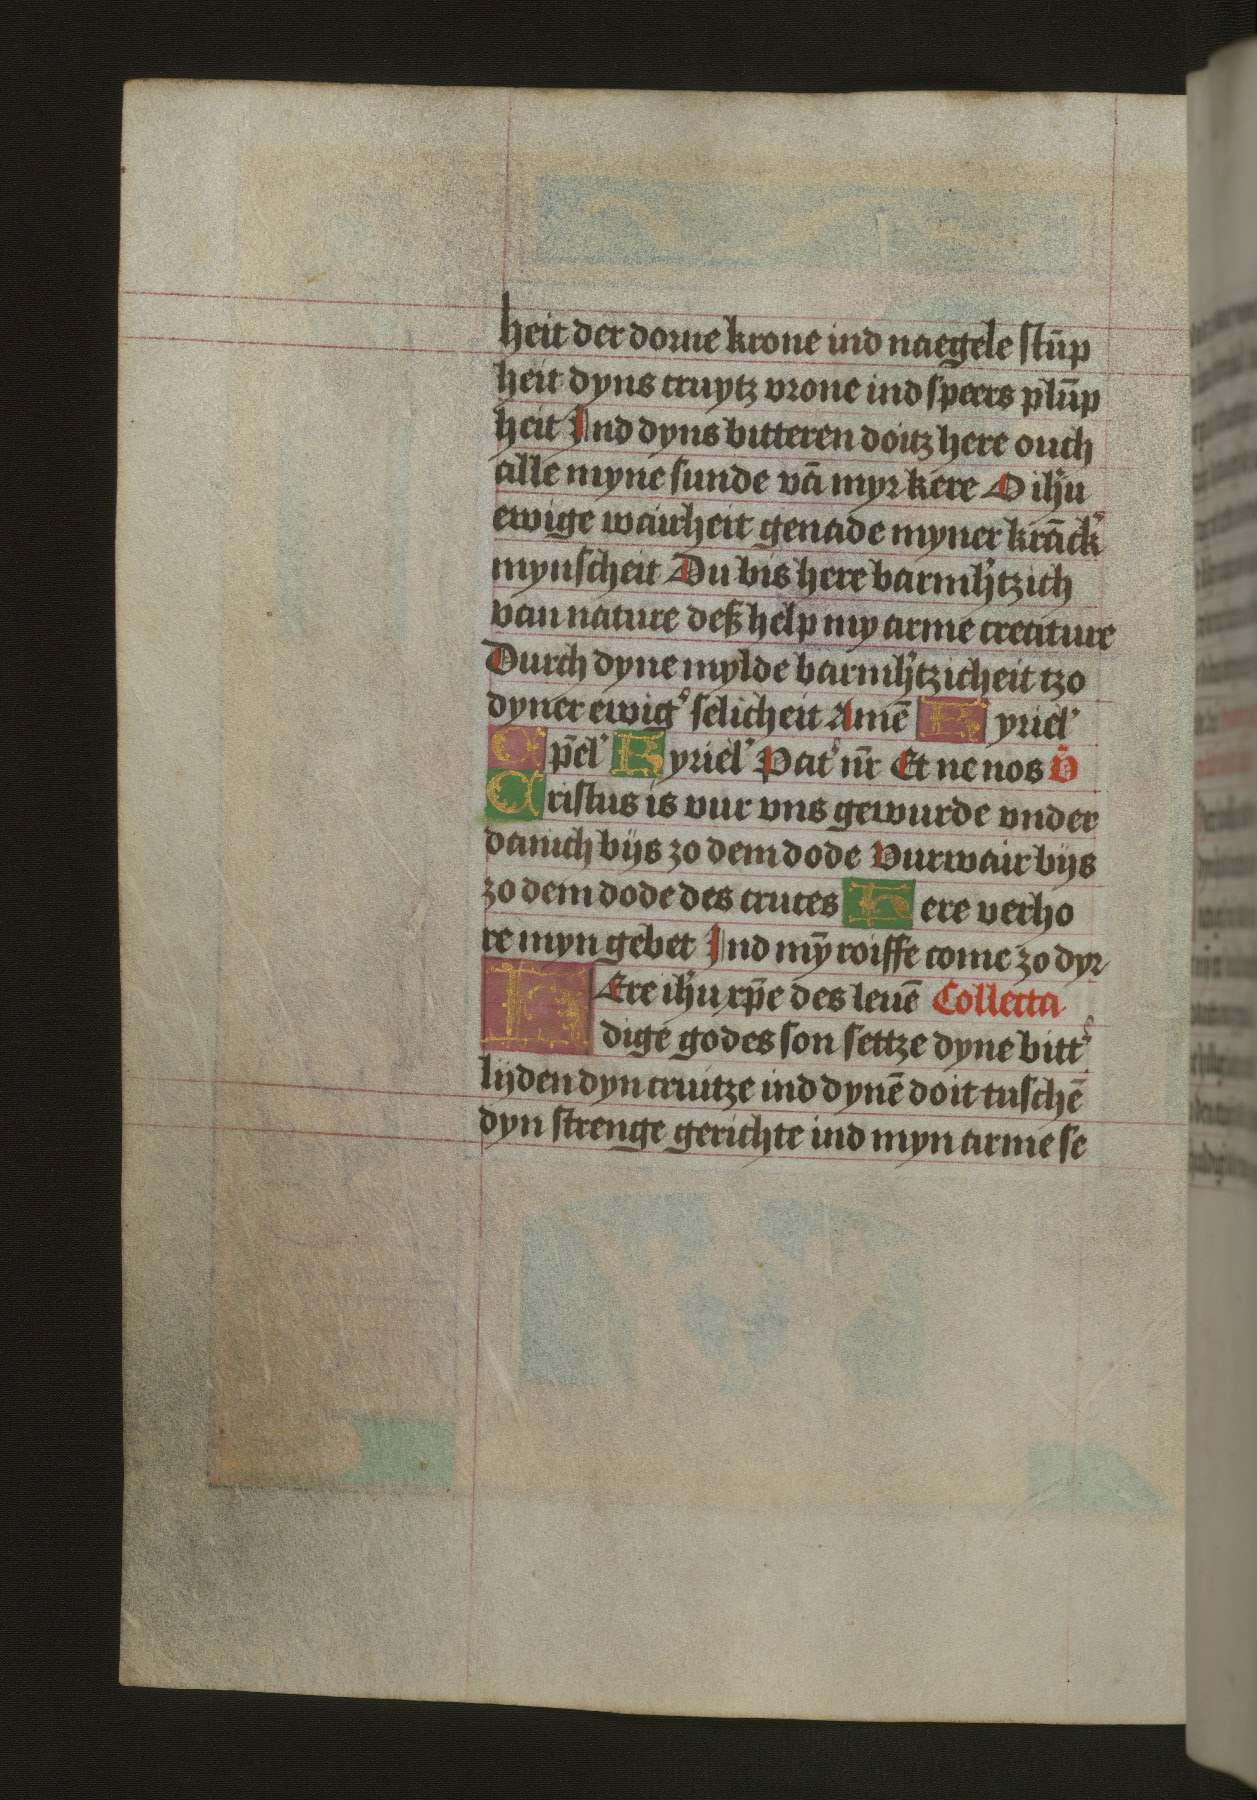 heit der dorne krone ind naegele stu̅p
heit dyns cruytz vrone ind speers plu̅p
heit Ind dyns bitteren doitz here ouch
alle myne sunde va̅ myr kere O ih̅u
ewige wairheit genade myner kra̅ck'
mynscheit Du bis here barmh'tzich
van nature deß help my arme creature
Durch dyne mylde barmh'tzicheit tzo
dyner ewig' selicheit Ame̅ Kyriel'
Cp̅el' Kyriel' Pat' n̅r Et ne nos V̅
Cristus is vur vns gewurde vnder
danich bijs zo dem dode Vurwair bijs
zo dem dode des cruces Here verho
re myn gebet Ind my̅ roiffe come zo dyr
HEre ih̅u xp̅e des leue̅ Collecta
dige godes son settze dyne bitt'
lijden dyn cruitze ind dyne̅ doit tusche̅
dyn strenge gerichte ind myn arme se